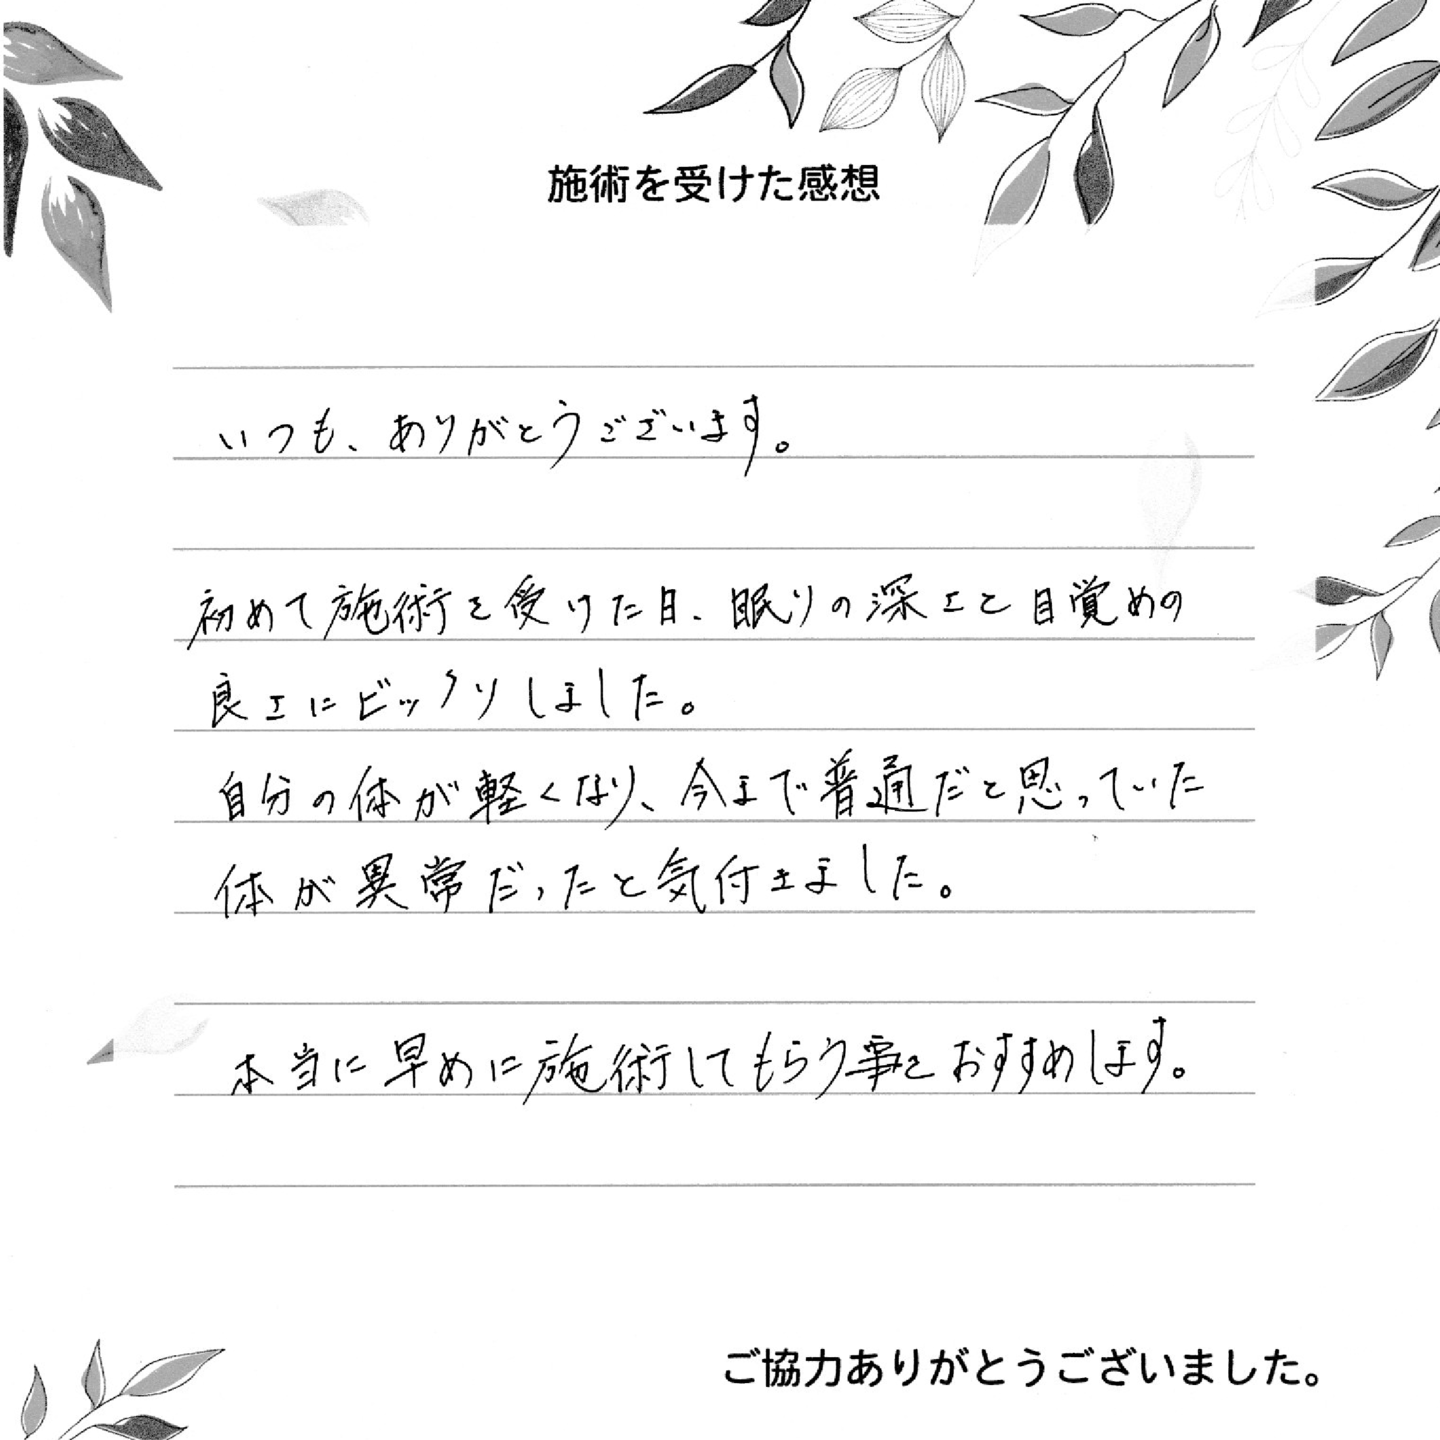 施術を受けた感想
いつも、ありがとうございます。
初めて施術を受けた日、眠りの深さと目覚めの
良さにビックリしました。
自分の体が軽くなり、今まで普通だと思っていた
体が異常だったと気付きました。
本当に早めに施術してもらう事をおすすめします。
ご協力ありがとうございました。